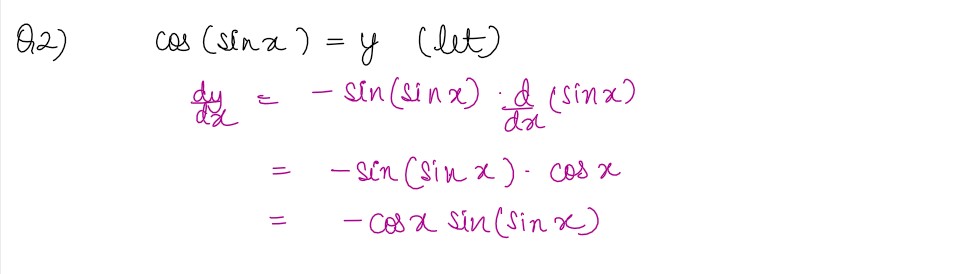 Q.2) cos (sin x) = y (let)
dy/dx = - sin(sin x) · d/dx (sin x)
= - sin (sin x) · cos x
= - cos x sin(sin x)